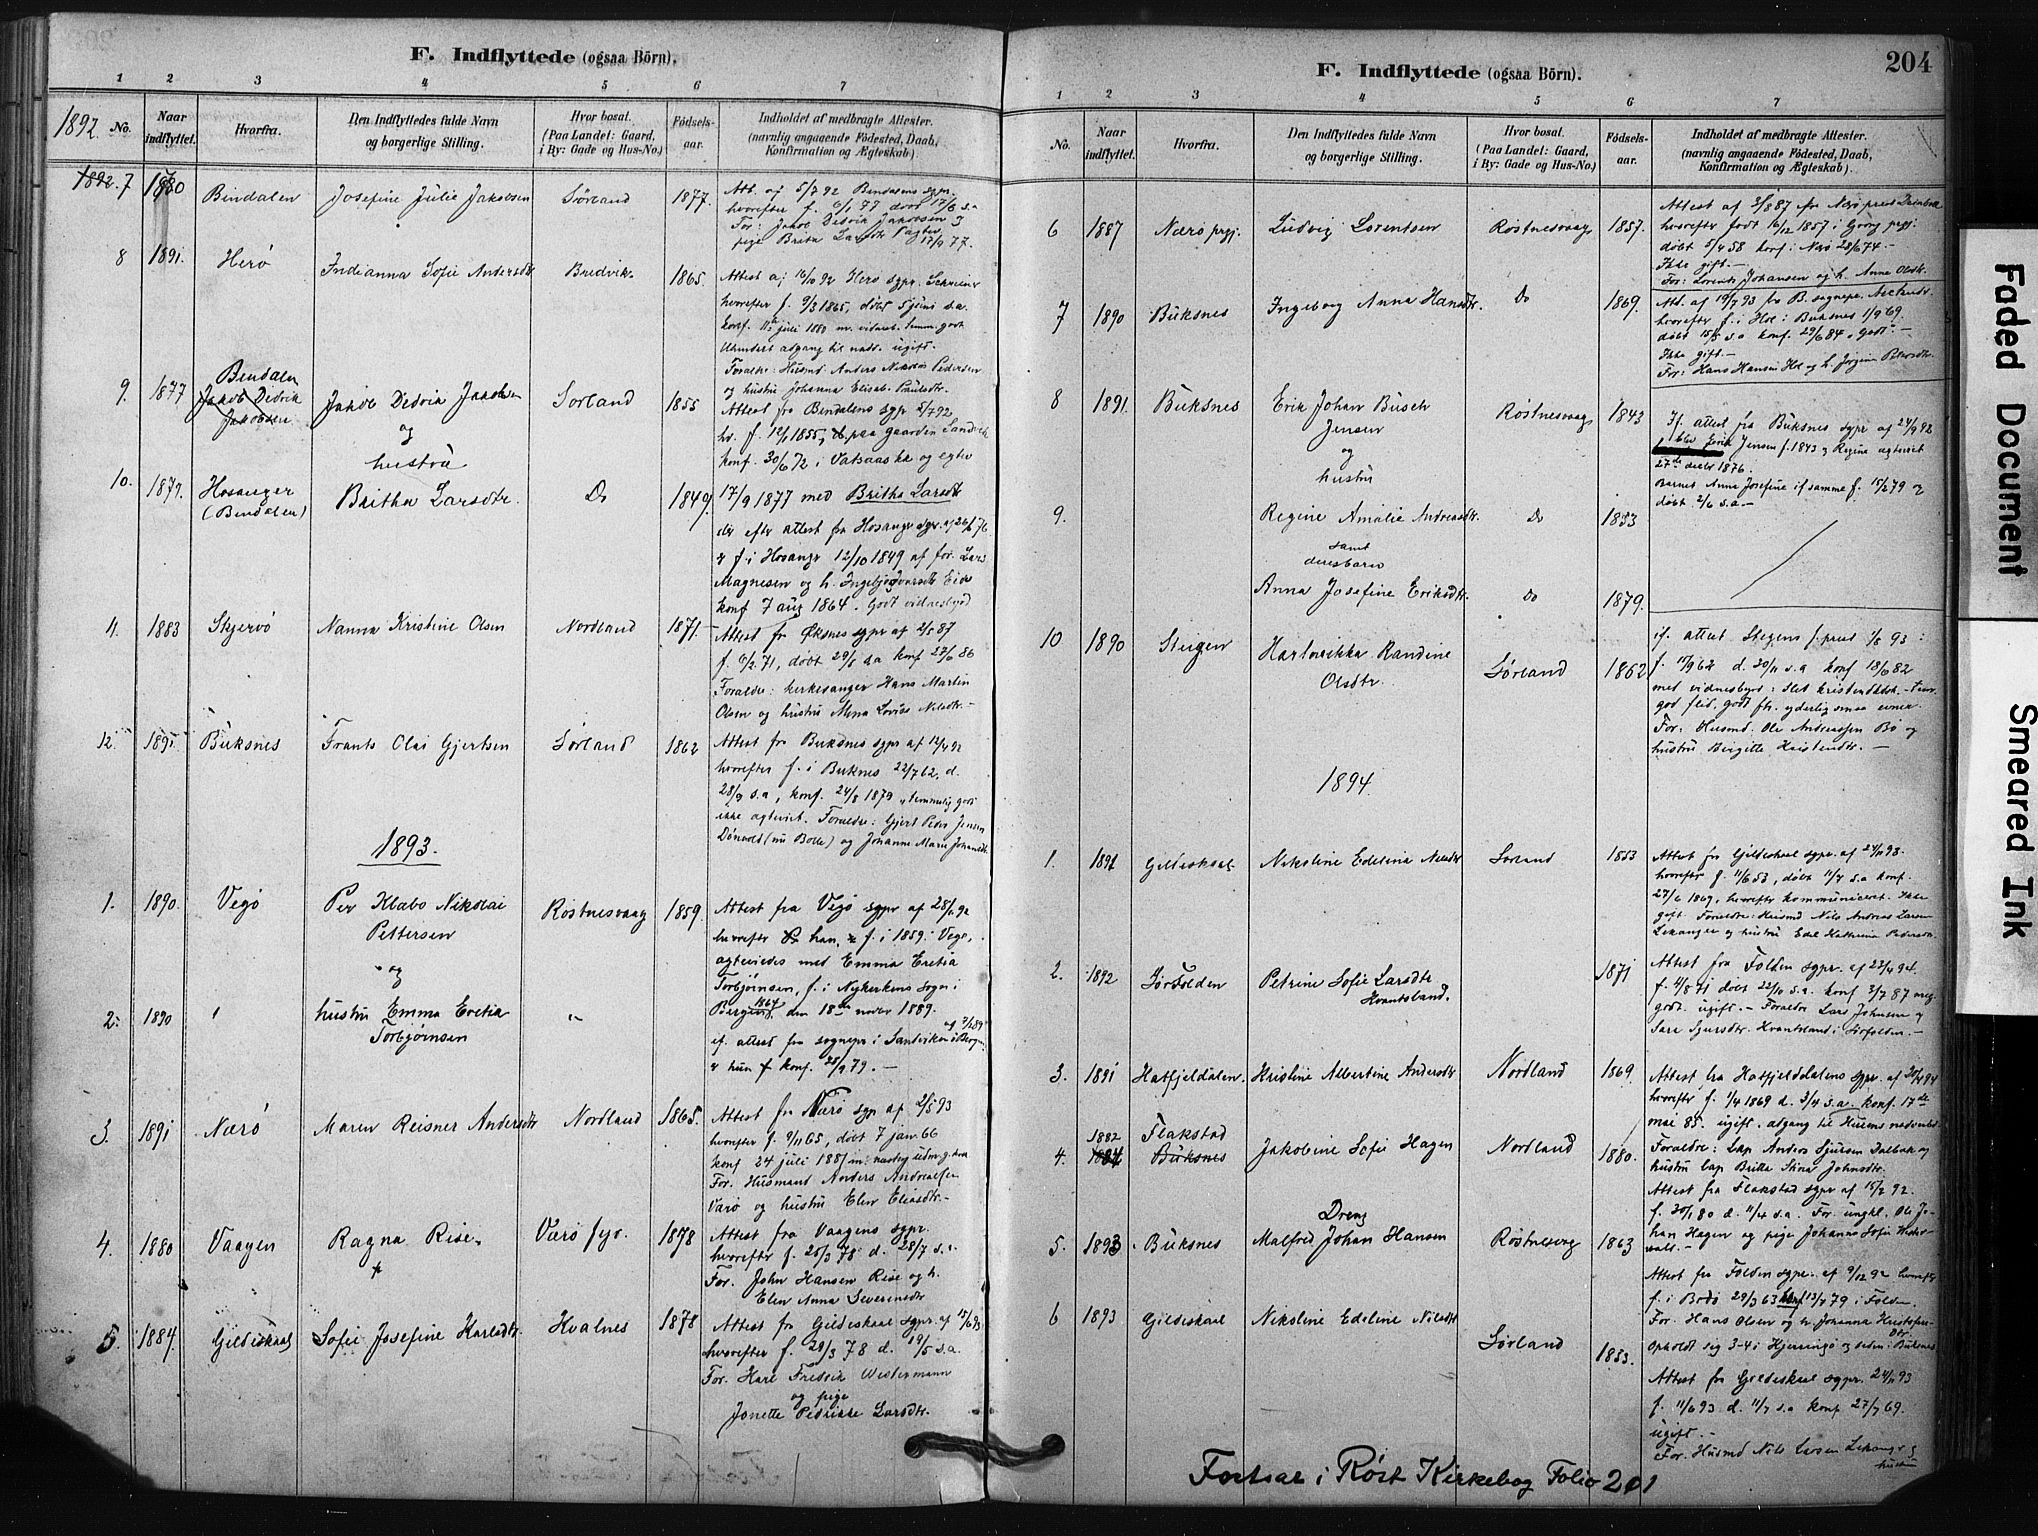 F. Indflyttede (ogsaa Börn).
1 2 3 4 5 6 7
1892. No.
Naar indflyttet.
Hvorfra.
Den Indflyttedes fulde Navn
og borgerlige Stilling.
Hvor bosat.
(Paa Landet: Gaard,
i By: Gade og Hus-No.)
Födsels-
aar.
Indholdet af medbragte Attester.
(navnlig angaaende Födested, Daab,
Konfirmation og Ægteskab).
1892. 7 1880 Bindalen Josefine Julie Jakobsen Sørland 1877.
Att. af 5/7 92 Bindalens sgpr.
hvorefter f. 6/1 77 døbt 17/6 s.a
For: Jakob Dedrik Jakobsen I
pige Brita Larsdtr
8 1891. Herø Indianna Sofie Andersdtr Bredvik 1865.
Attest af 16/10 92 Herø sgpr.
hvorefter f. 9/3 1865, døbt 5 juni s.a.
Forældre: Husmd. Anders Nikolai Pedersen
og hustru Johanna Elisab. Paulsdtr.
9. 1877 Bendalen
Jakob Dedrik
Jakobsen
Jakob Dedrik Jakobsen Sørland 1855
og
hustru
Attest fra Bendalens sgpr 2/7 92
hv. f. 12/1 1855, paa gaarden Sandvik
konf. 30/6 72 i Vatsaas kk og egtev
10. 1877. Hosanger
(Bendalen)
Britha Larsdtr. Do 1849.
17/9 1877 med Britha Larsdtr
der efter attest fra Hosanger sgpr. af 26/6 76
er f. i Hosangr 12/10 1849 af for. Lars
Magnesen og h. Ingebjør Ivarsdtr Eide
konf 7 aug 1864. Godt vidnesbyrd
11. 1883 Skjervø Nanna Kristine Olsen Nordland 1871.
Attest fr Øksnes sgpr af 2/5 87
f. 9/2 71, døbt 29/5 s.a konf 27/6 86
Forældre: kirkesanger Hans Martin
Olsen og hustru Mena Lovise Nilsdtr.
12. 1891. Buksnes Frants Olai Gjertsen Sørland 1862
Attest fra Buksnes sgpr af 12/4 92
hvorefter f. i Buknes 22/7 62, d.
28/9 s.a, konf. 24/8 1879 temmelig godt
ikke egteviet. Forældre: Gjert Peder Jensen
Dönvold (nu Bolle) og Johanne Marie Johansdtr.
1893.
1. 1890. Vegø Per Klabo Nikolai
Pettersen
og
Røstnesvaag 1859.
Attest fra Vegø sgpr af 28/6 92
hvorefter han, f. i 1859 i Vegø,
egteviedes med Emma Eretia
Torbjørnsen, f. i Nykerkens sogn i
2. 1890 hustru Emma Eretia
Torbjørnsen
Bergen 1864, den 18de novbr 1889.
if. attest fra sognepr i Sandviken i Bergen
er hun konf. 28/9 79.
3. 1891 Nærø Maren Reisner Andersdtr Nordland 1865.
Attest fr Nærø sgpr af 2/5 93
hvorefter f. 9/11 65, døbt 7 jan. 66
konf 24 juli 1881
For. Husmand Anders Andreassen
Varø og hustru Elen Eliasdtr.
4. 1880 Vaagen Ragna Rise. Værø 1878
Attest fra Vaagens sgpr.
hvorefter f. 25/3 78 d. 28/7 s.a
For. John Hansen Rise og h.
Elen Anna Severinsdtr
5. 1884. Gildeskaal Sofie Josefine Karlsdtr. Kvalnes 1878
Attest fra Gildeskaal sgpr. af 15/6 93
hvorefter f. 29/3 78 d. 19/5 s.a.
For. Karl Fredrik Westermann
og pige
Jonette Pedrikke Larsdtr.
F. Indflyttede (ogsaa Börn).
204
1 2 3 4 5 6 7
No.
Naar indflyttet.
Hvorfra.
Den Indflyttedes fulde Navn
og borgerlige Stilling.
Hvor bosat.
(Paa Landet: Gaard,
i By: Gade og Hus-No.)
Födsels-
aar.
Indholdet af medbragte Attester.
(navnlig angaaende Födested, Daab,
Konfirmation og Ægteskab).
6 1887 Nærø prgj. Ludvig Lorentsen Røstnesvaag 1857.
hvorefter født 16/12 1857 i prgj.
døbt 5/4 58 konf. i Nærø 28/6 74.
Ikke gift.
For: Lorents Johansen og h. Anne Olsdtr.
7 1890 Buksnes Ingeborg Anna Hansdtr. Do 1869.
Att. af 19/7 93 fra B. sognepr.
hvorefter f. i Hol i Buksnes 1/9 69.
døbt 15/8 s.a konf. 29/6 84, godt.
Ikke gift.
For: Hans Hansen Hol og h.
8 1891. Buksnes Erik Johan Busch
Jensen
og
hustru
Røstnesvaag 1843
If. attest fra Buksnes sgpr af 24/9 92
blev Erik Jensen f. 1843 og Regine egteviet
27de decbr 1876.
Barnet Anna Josefine if samme f. 15/2 79 og
døbt 2/6 s.a.
9. Regine Amalie Andreasdtr. Do 1853
samt
deres barn
Anna Josefine Eriksdtr. Do 1879.
10 1890 Steigen Hartvikka Randine
Olsdtr.
Sørland 1862
if. attest Stegens s.prest 1/8 93:
f. 17/9 62 d. 30/11 s.a konf 18/6 82
For: Husmd. Ole Andreassen Bø og
hustru Birgitte Kristensdtr.
1894.
1. 1891 Gildeskaal Nikoline Edeline Nilsdtr Sørland 1853
Attest fra Gildeskaal sgpr. af 24/11 93.
hvorefter f. 11/6 53, døbt 11/7 s.a konf.
27/6 1869, hvorefter kommuniceret. Ikke
gift Forældre: Husmd Nils Andreas Larsen
Lekanger og hustru Edel Kathrina Pedersdtr.
2. 1892 Sørfolden Petrine Sofie Larsdtr
Kvantsland.
1871
Attest fra Folden sgpr. af 23/4 94.
f. 4/8 71 døbt 22/10 s.a. konf 3/7 87 meg.
godt. ugift. Forældre Lars Johnsen og
Sara Sjursdtr. Kvantsland i Sørfolden.
3. 1891 Hatfjeldalen. Kristine Albertine Andersdtr Nordland 1869.
Attest fra Hatfjelddalens sgpr. af 30/4 94
hvorefter f. 1/4 1869 d. 2/4 s.a. konf. 17de
mai 85. ugift. adgang til Herrens nadverbd.
Forældre: Lap Anders Sjursen Dalbak og
hustru lap Britta Stina Johnsdtr.
4. 1882
1884
Flakstad
Buksnes
Jakobine Sofie Hagen Nordland 1880.
Attest fra Flakstad sgpr af 15/2 92.
f. 30/1 80 d. 11/4 s.a. For. ungkl. Ole Jo-
han Hagen og pige Johanna Sofie
5. 1893 Buksnes Dreng
Malfred Johan Hansen Røstnesvag 1863
Attest fra Folden sgpr. af 9/12 92 hvorefter
f. i Bodø 29/3 63 konf 13/7 79 i Folden.
For. Hans Olsen og h. Johanna Kristofers-
dtr.
Opholdt sig 3-4 i Kjerringø og siden i Buksnes
6 1893 Gildeskaal Nikoline Edeline Nilsdtr
Sørland 1853.
Attest fra Gildeskaal sgpr. 24/11 93
f. 11/6 93 d. 11/7 s.a konf 27/7 69.
ugift.
For. Husmd Nils Larsen Lekangr og
hustru
Fortsat i Røst Kirkebog Folio 201
Faded Document
Smeared Ink